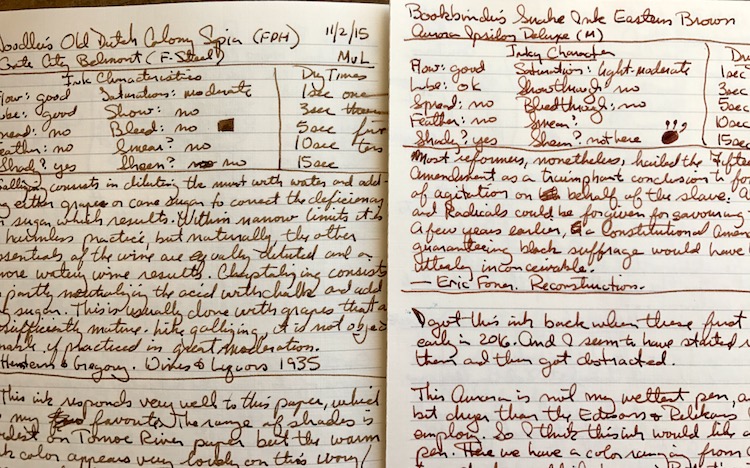 Noodler's Old Dutch Colony Sepia (FPH) 11/2/15
Gate City Belmont (F. Steel) MvL
Ink Characteristics Dry Times
Flow: good Saturation: moderate 1sec one
Lube: good Show: no 3sec
Spread: no Bleed: no 5sec five
Feather: no Smear? no 10sec ten
Shady? yes Sheen? no 15sec
Gallizing consists in diluting the must with water and add-
ing either grape or cane sugar to correct the deficiency
in sugar which results. Within narrow limits it is
a harmless practice, but naturally, the other
essentials of the wine are equally diluted and a
more watery wine results. Chaptalizing consists
in partly neutralizing the acid with chalk and add
ing sugar. This is usually done with grapes that a
sufficiently mature. Like gallizing, it is not objec
nable, if practiced in great moderation.
& Gregory. Wines & Liquors 1935
This ink responds very well to this paper, which
my favourite. The range of shades is
widest on Tomoe River paper but the warm
color appears very lovely on this ivory
Bookbinder's Snake Ink Eastern Brown
Aurora Ipsilon Deluxe (M)
Inky Character Dry
Flow: good Saturation: light-moderate 1sec
Lube: ok Showthrough: no 3sec
Spread: no Bleedthrough: no 5sec
Feather: no Smear? 10sec
Shady? yes Sheen? not here 15sec
Most reformers, nonetheless, hailed the Fifte
Amendment as a triumphant conclusion to fo
of agitation on behalf of the slave.
and Radicals could be forgiven for savouring
A few years earlier, a Constitutional Amen
guaranteeing black suffrage would have
utterly inconceivable.
— Eric Foner. Reconstruction.
I got this ink back when these first
early in 2016. And I seem to have started
them and then got distracted.
This Aurora is not my wettest pen, a
but dryer than the Edisons & Pelikans
employ. So I think this ink would like a
pen. There we have a color ranging from